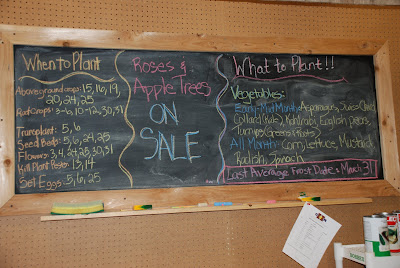 When to Plant
Above ground crops: 15, 16, 19,
20, 24, 25
Root Crops: 3-6, 10-12, 30, 31
Transplant: 5, 6
Seed Beds: 5, 6, 24, 25
Flowers: 3, 4, 24, 25, 30, 31
Kill Plant Pests: 13, 14
Set Eggs: 5, 6, 25
Roses &
Apple Trees
ON
SALE
What to Plant!!
Vegetables:
Early-Mid Month: Asparagus, Swiss Chard
Collard (Kale), Kohlrabi, English peas,
Turnips (Greens & Roots)
All Month: Corn, Lettuce, Mustard
Radish, Spinach
Last Average Frost Date = March 31